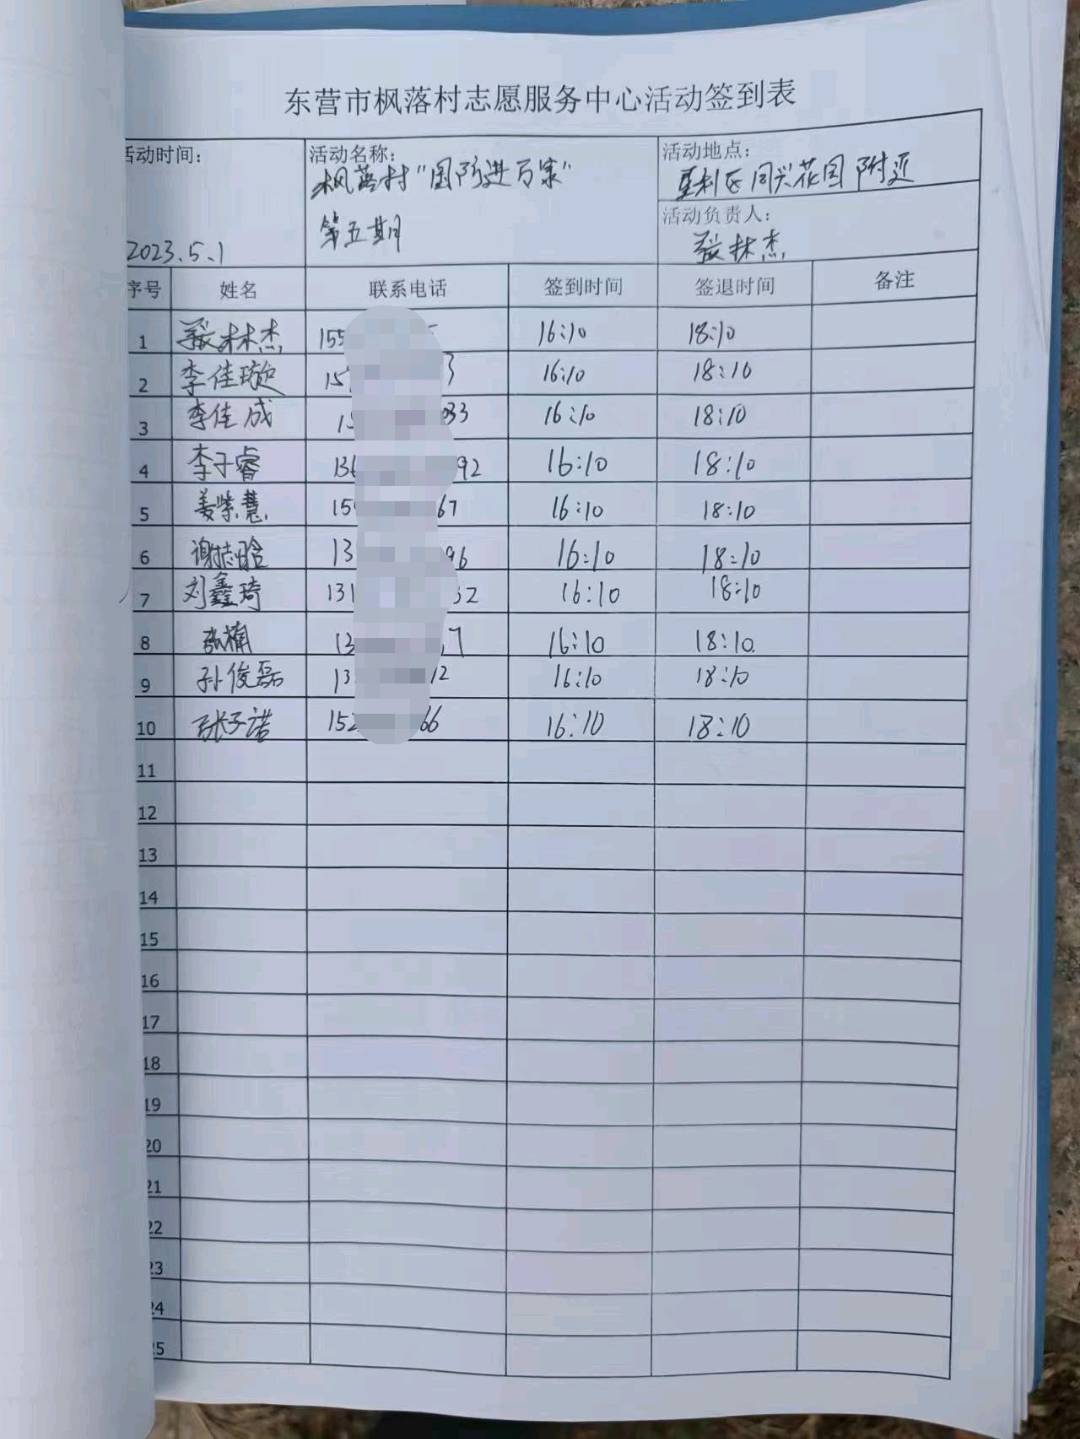 东营市枫落村志愿服务中心活动签到表
活动时间: 活动名称: 活动地点:
枫落村"国防进万家" 垦利区同兴花园附近
第五期 活动负责人:
2023.5.1 张林杰
序号 姓名 联系电话 签到时间 签退时间 备注
1 张林杰 155 16:10 18:10
2 李佳璇 15 3 16:10 18:10
3 李佳成 15 033 16:10 18:10
4 李子睿 136 92 16:10 18:10
5 姜紫慧 159 67 16:10 18:10
6 谢志晗 13 96 16:10 18:10
7 刘鑫琦 131 32 16:10 18:10
8 张楠 13 7 16:10 18:10
9 孙俊磊 13 12 16:10 18:10
10 张子诺 152 66 16:10 18:10
11
12
13
14
15
16
17
18
19
20
21
22
23
24
25